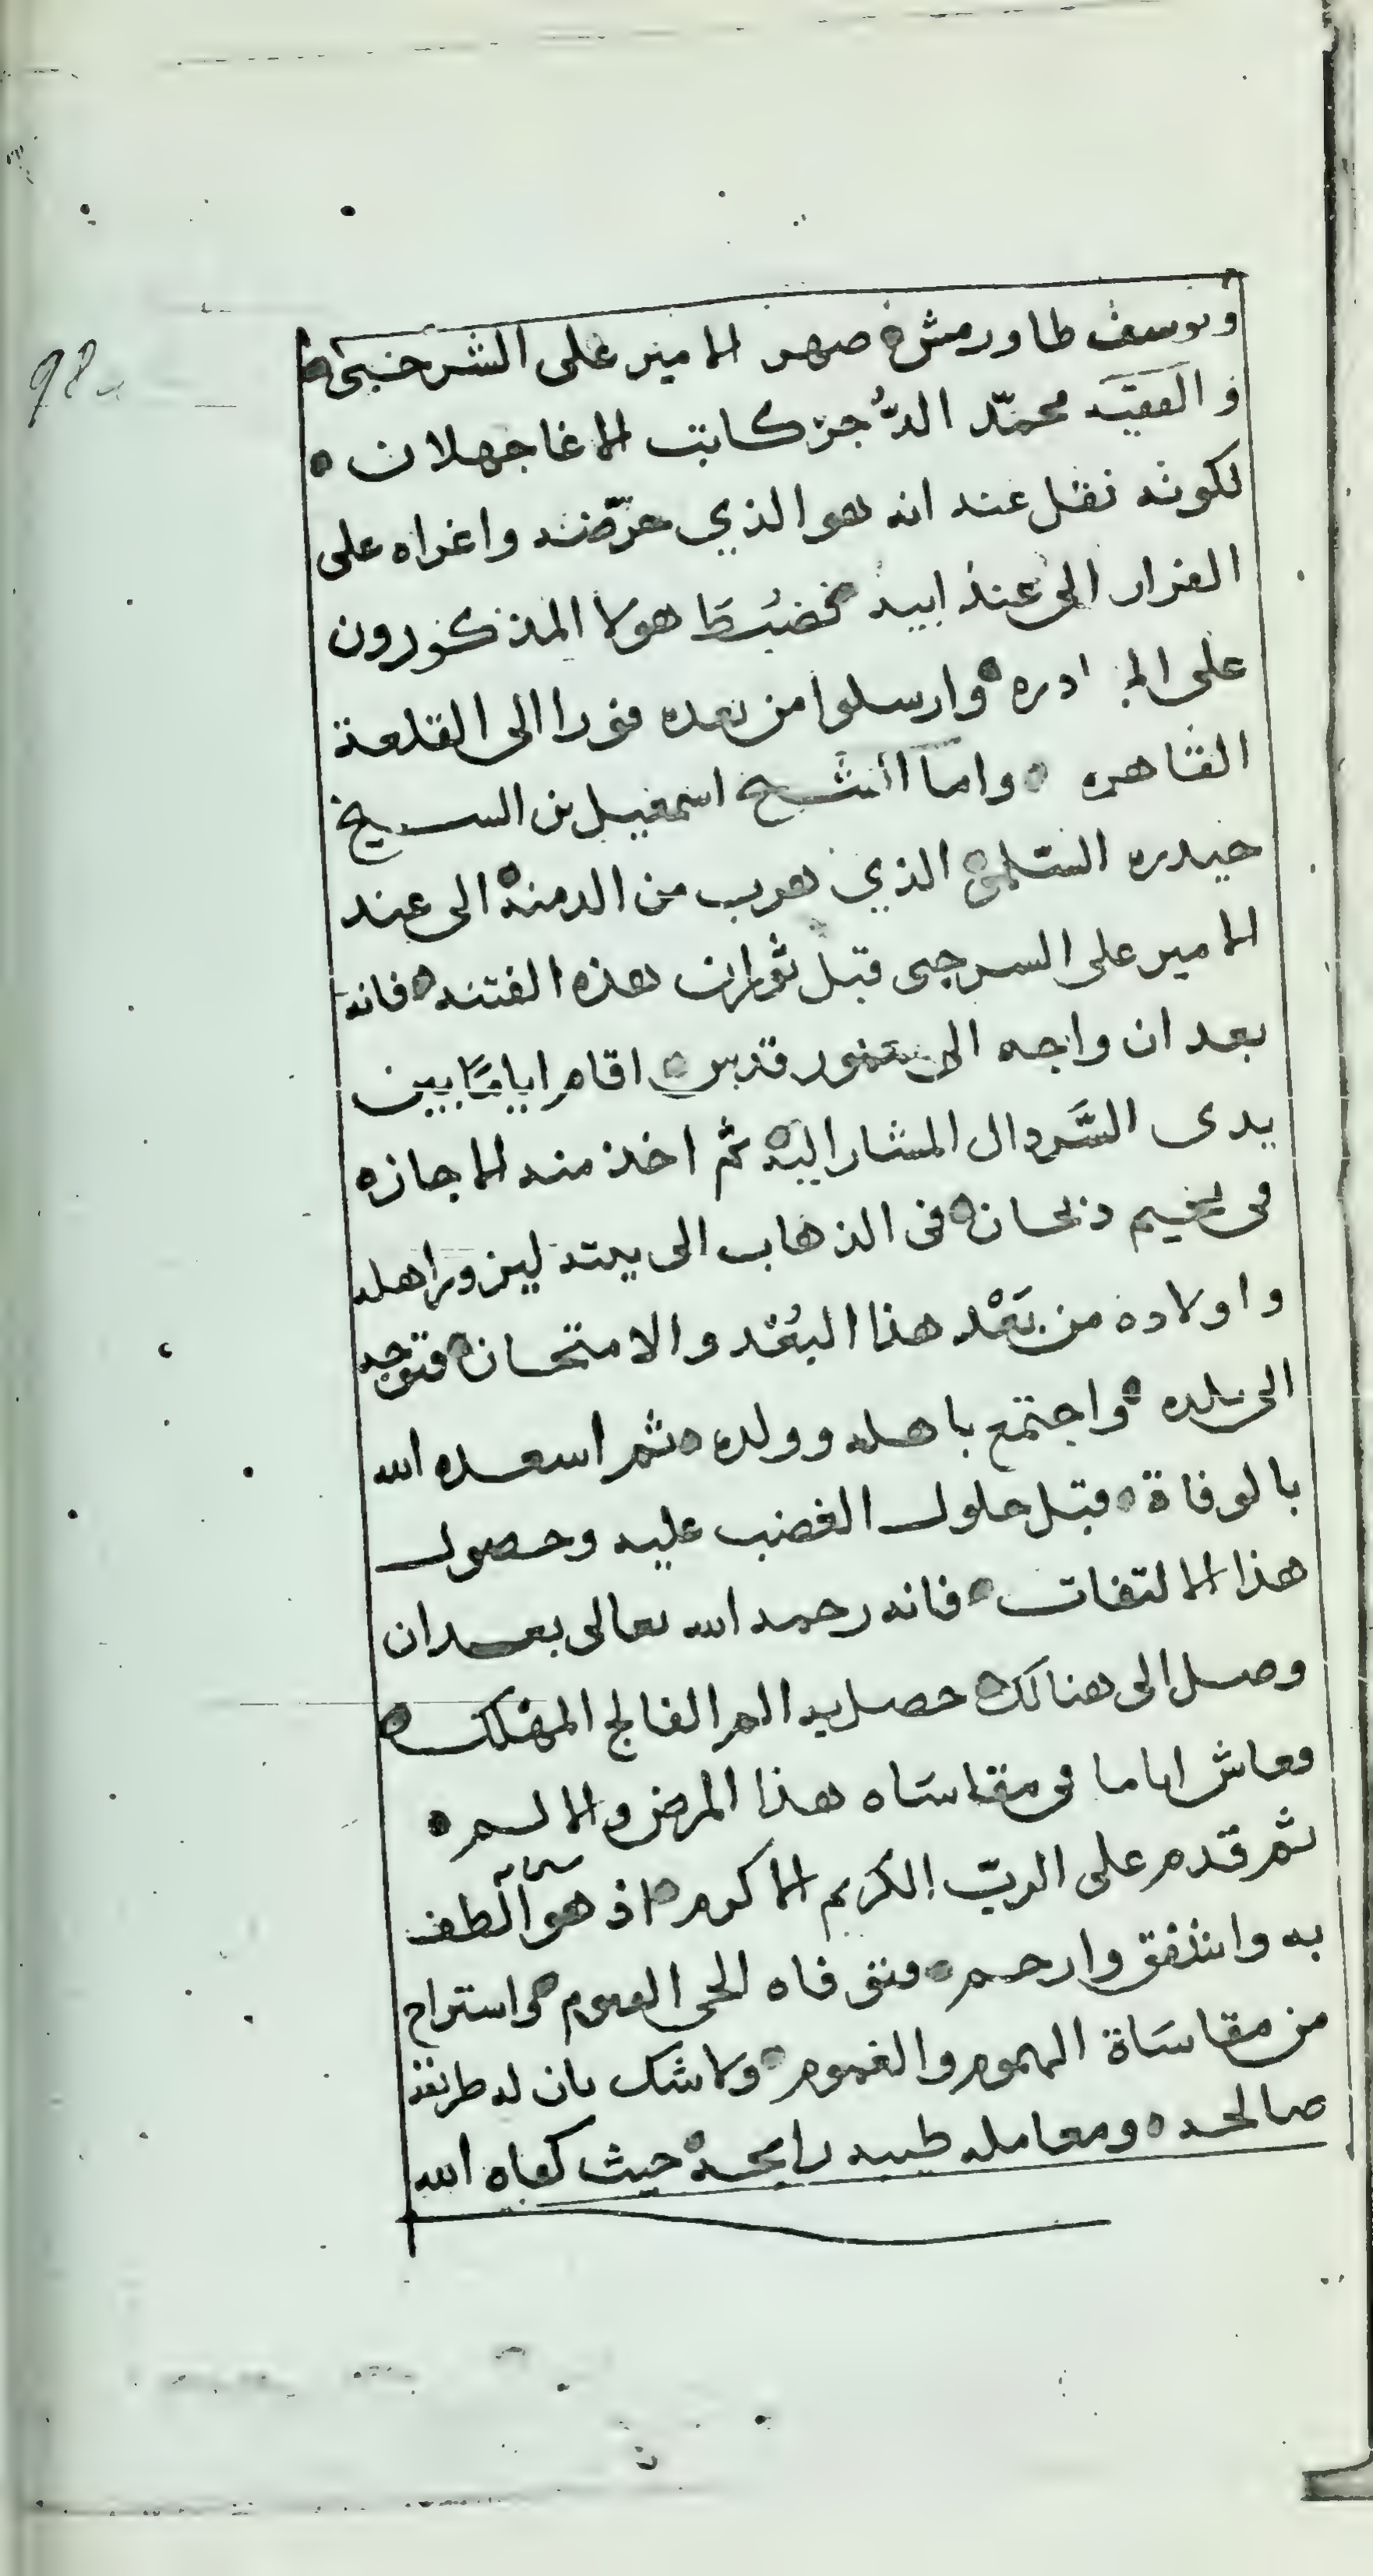 ويوسف طاورمش صهر الامير على الشرجبى
والفقيه محمّد الدُّجز كاتب الاغا جهلان
لكونه نقل عنه انه هو الذي حرّضه واغراه على
الفرار الى عند ابيه فضبط هولا المذكورون
على وارسلوا من بعده فورا الى القلعة
القاهره واما الشيخ اسمعيل بن الشيخ
حيدره السلمى الذي هرب من الدمنة الى عند
الامير على السرجبى قبل ثوران هذه الفتنه فانه
بعد ان واجه الى قدس اقام ايامًا بين
يدى السَّردال المشار اليه ثم اخذ منه الاجازه
فى مخيم ذبحان فى الذهاب الى بيته ليزور اهله
واولاده من بَعْد هذا البُعْد والامتحان فتوجه
الى بلده واجتمع باهله وولده ثم اسعده الله
بالوفاة قبل حلول الغضب عليه وحصول
هذا الالتفات فانه رحمه الله تعالى بعد ان
وصل الى هنالك حصل به الم الفالج المهلك
فعاش اياما فى مقاساه هذا المرض والالم
ثم قدم على الربّ الكريم الاكرم اذ هو الطف
به واشفق وارحم فتوفاه الحى القيوم واستراح
من مقاسَاة الهموم والغموم ولاشك بان له طريقة
صالحه ومعامله طيبه رابحة حيث كفاه الله